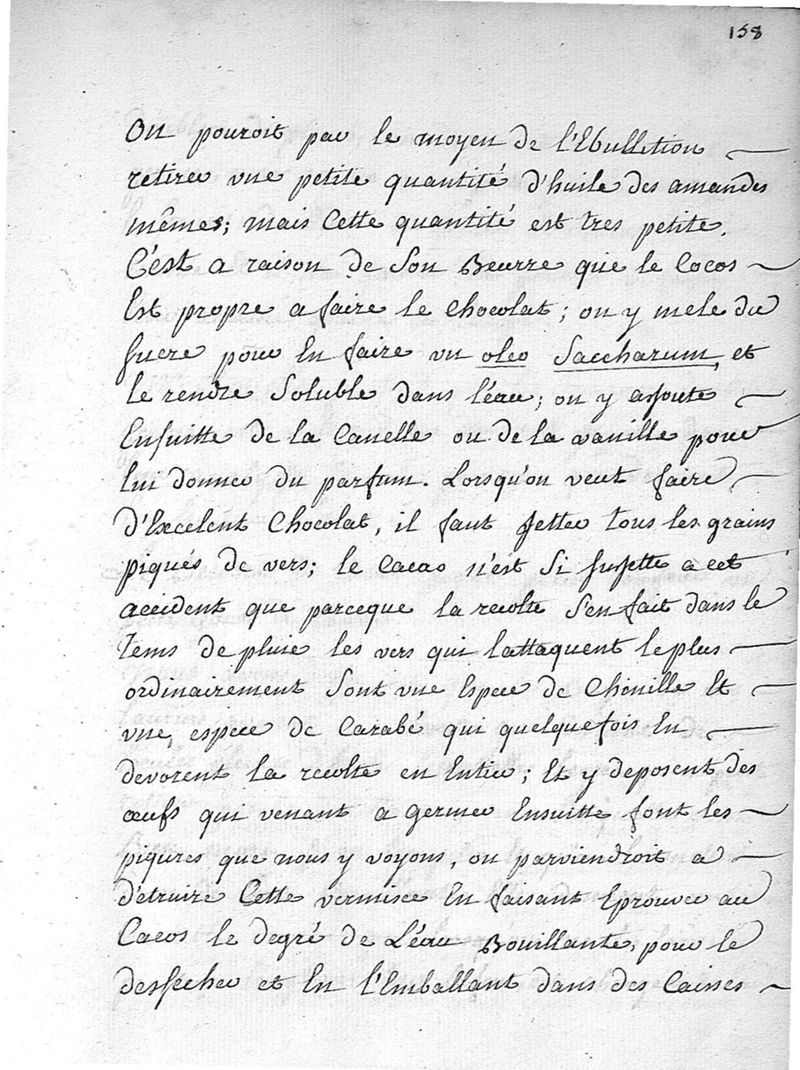 158
On pouroit par le moyen de l'Ebullition
retirer une petite quantité d'huile des amandes
mêmes; mais Cette quantité est tres petite.
C'est a raison de Son Beurre que le Cocos
Est propre a faire le Chocolat; on y mele du
sucre pour En faire un oleo Saccharum, et
le rendre Soluble dans l'éau; on y ajoute
Ensuitte de la Canelle ou de la vanille pour
lui donner du parfum. Lorsqu'on veut faire
d'Excelent Chocolat, il faut jetter tous les grains
piqués de vers; le Cacao n'est Si sujette a cet
accident que parceque la recolte S'en fait dans le
Tems de pluie les vers qui l'attaquent le plus
ordinairement Sont une Espece de Chenille Et
une espece de Carabé qui quelquefois En
devorent la recolte en Entier; Et y deposent des
œufs qui venant a germer Ensuitte font les
piqures que nous y voyons, on parviendroit a
détruire Cette vermisce En faisant Eprouver au
Cacos le degré de L'éau Bouillante, pour le
dessecher et En l'Emballant dans des Caisses